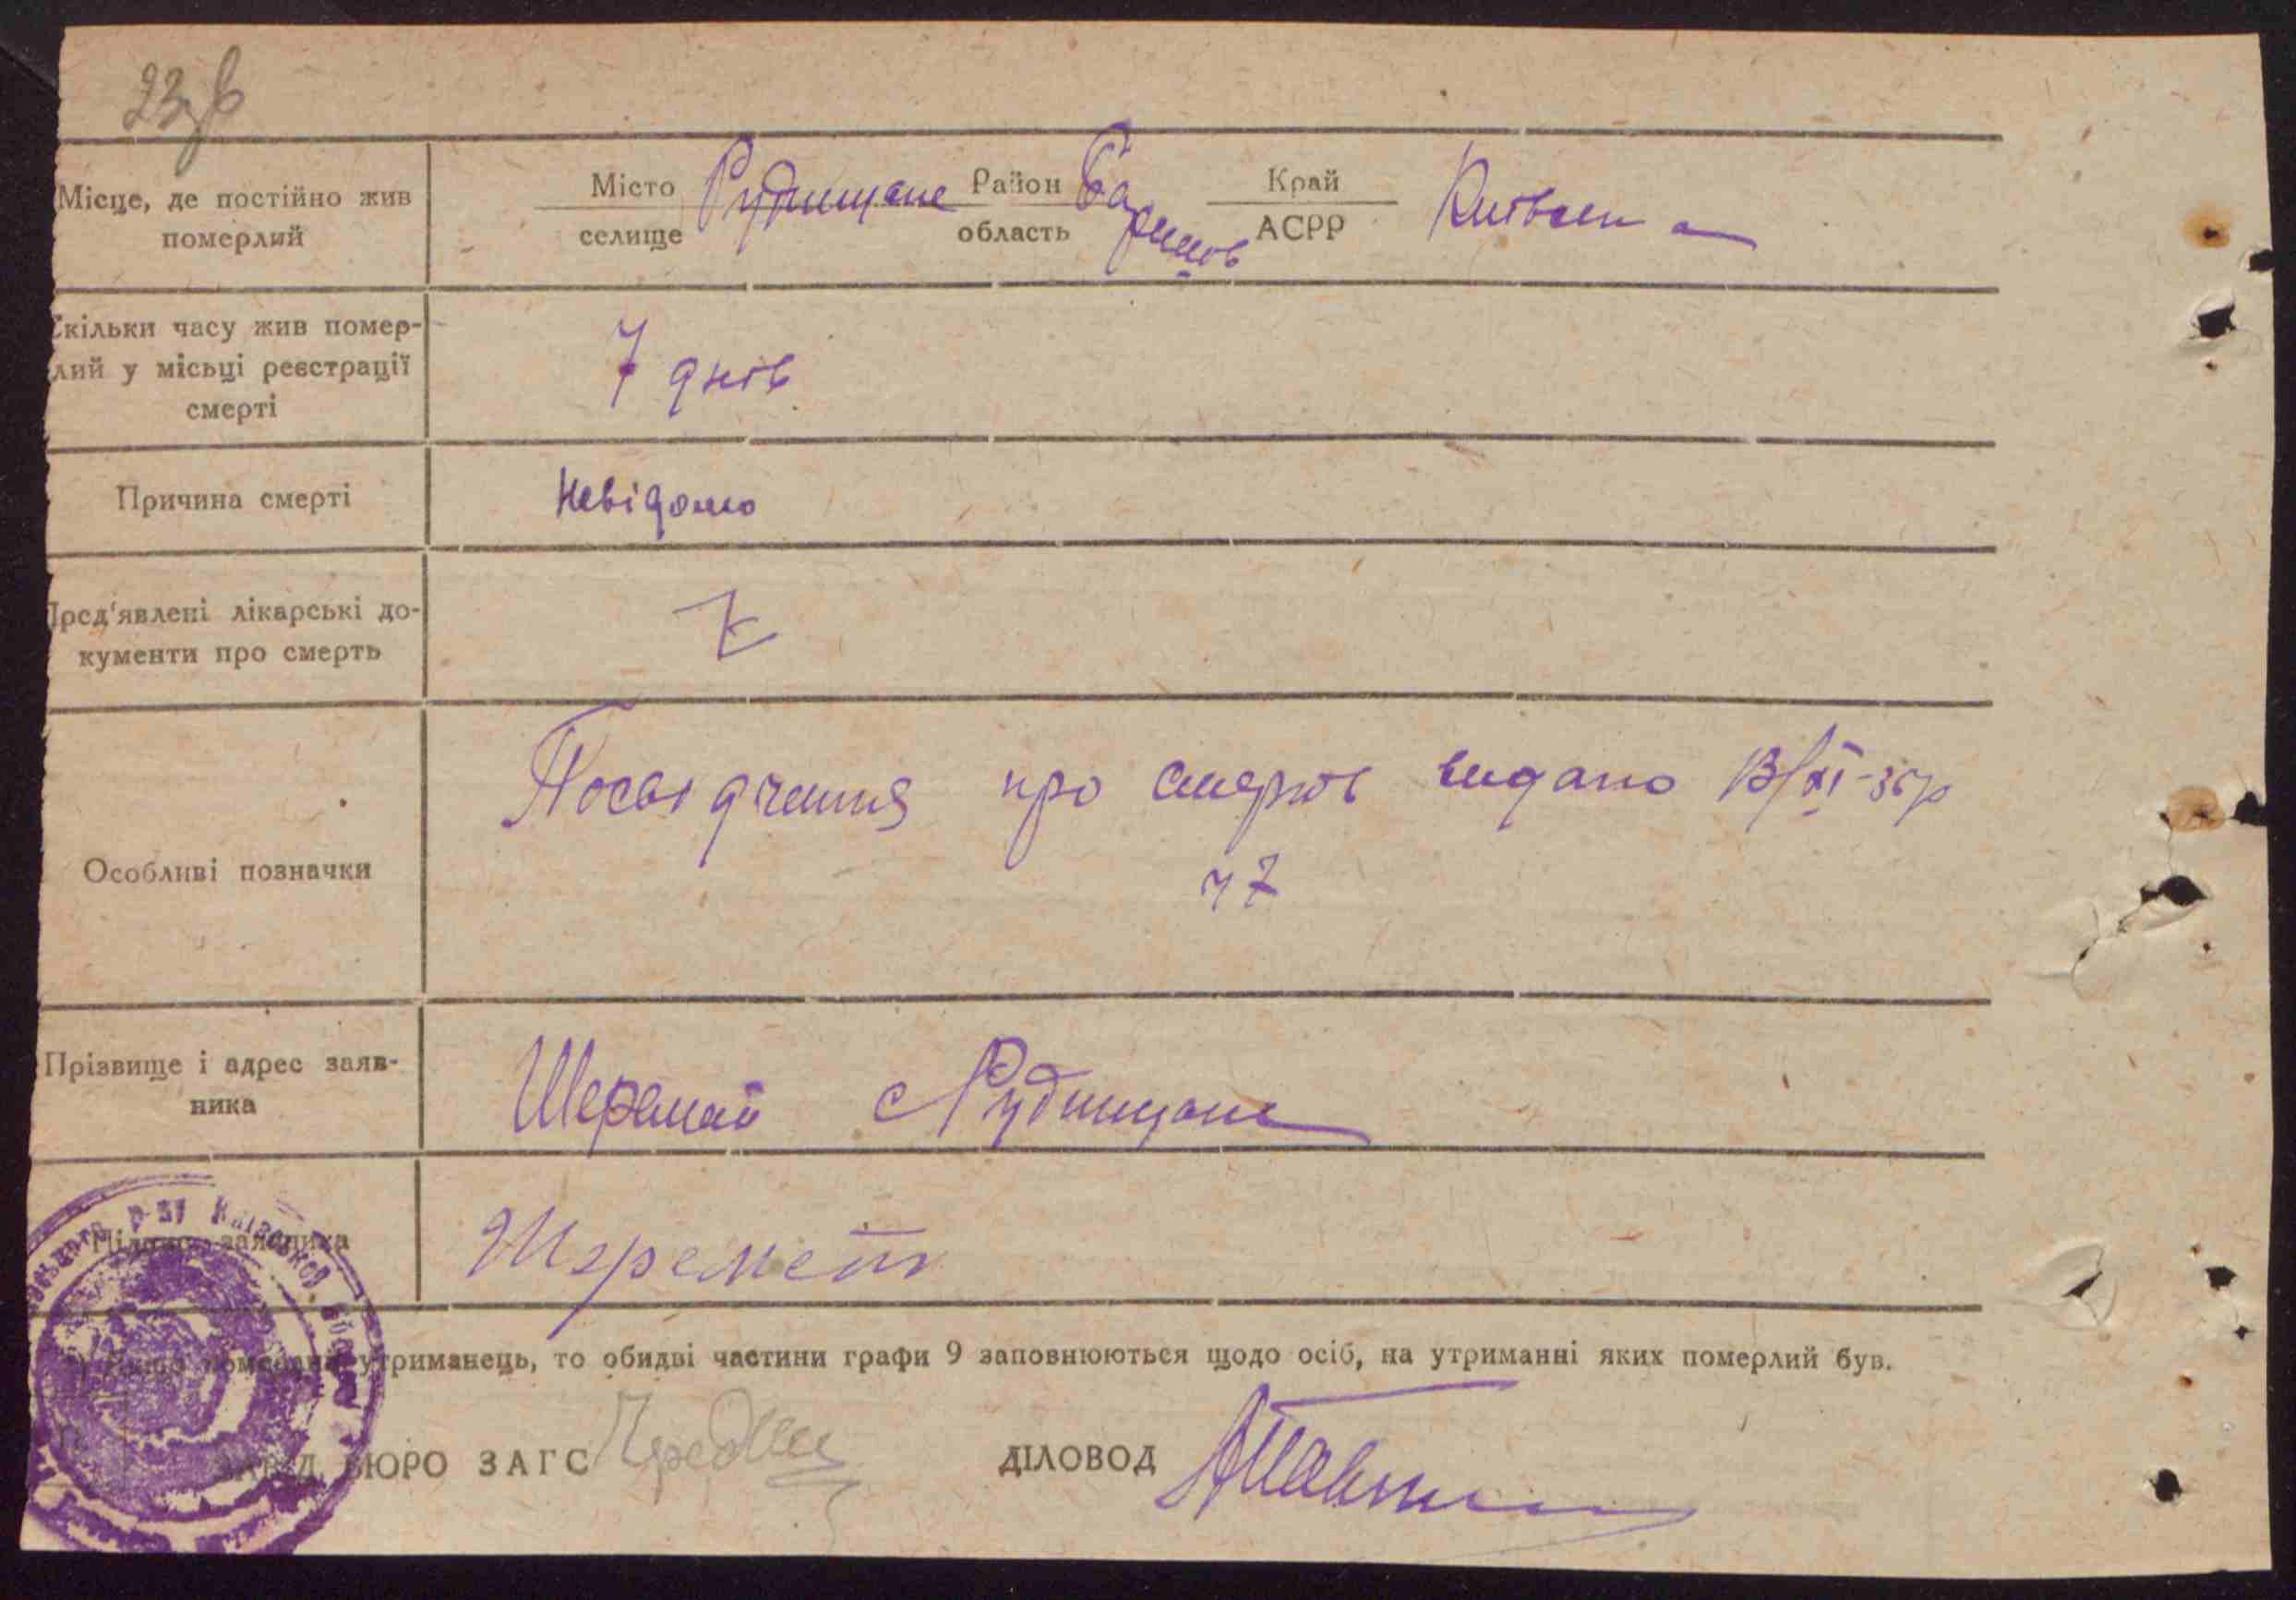 23
Місце, де постійно жив
померлий
Місто
селище
Рудницьке
Район
область
Баришів
Край
АСРР
Київськ
Скільки часу жив помер-
лий у місьці реєстрації
смерті
7 днів
Причина смерті
Невідомо
Пред'явлені лікарські до-
кументи про смерть
Особливі позначки
Посвідчення про смерть видано 13/XI-36р
Прізвище і адрес заяв-
ника
Шеремет с Рудницьке
Підпис заявника
Шеремет
померлий утриманець, то обидві частини графи 9 заповнюються щодо осіб, на утриманні яких померлий був.
ЗАВІД. БЮРО ЗАГС
ДІЛОВОД